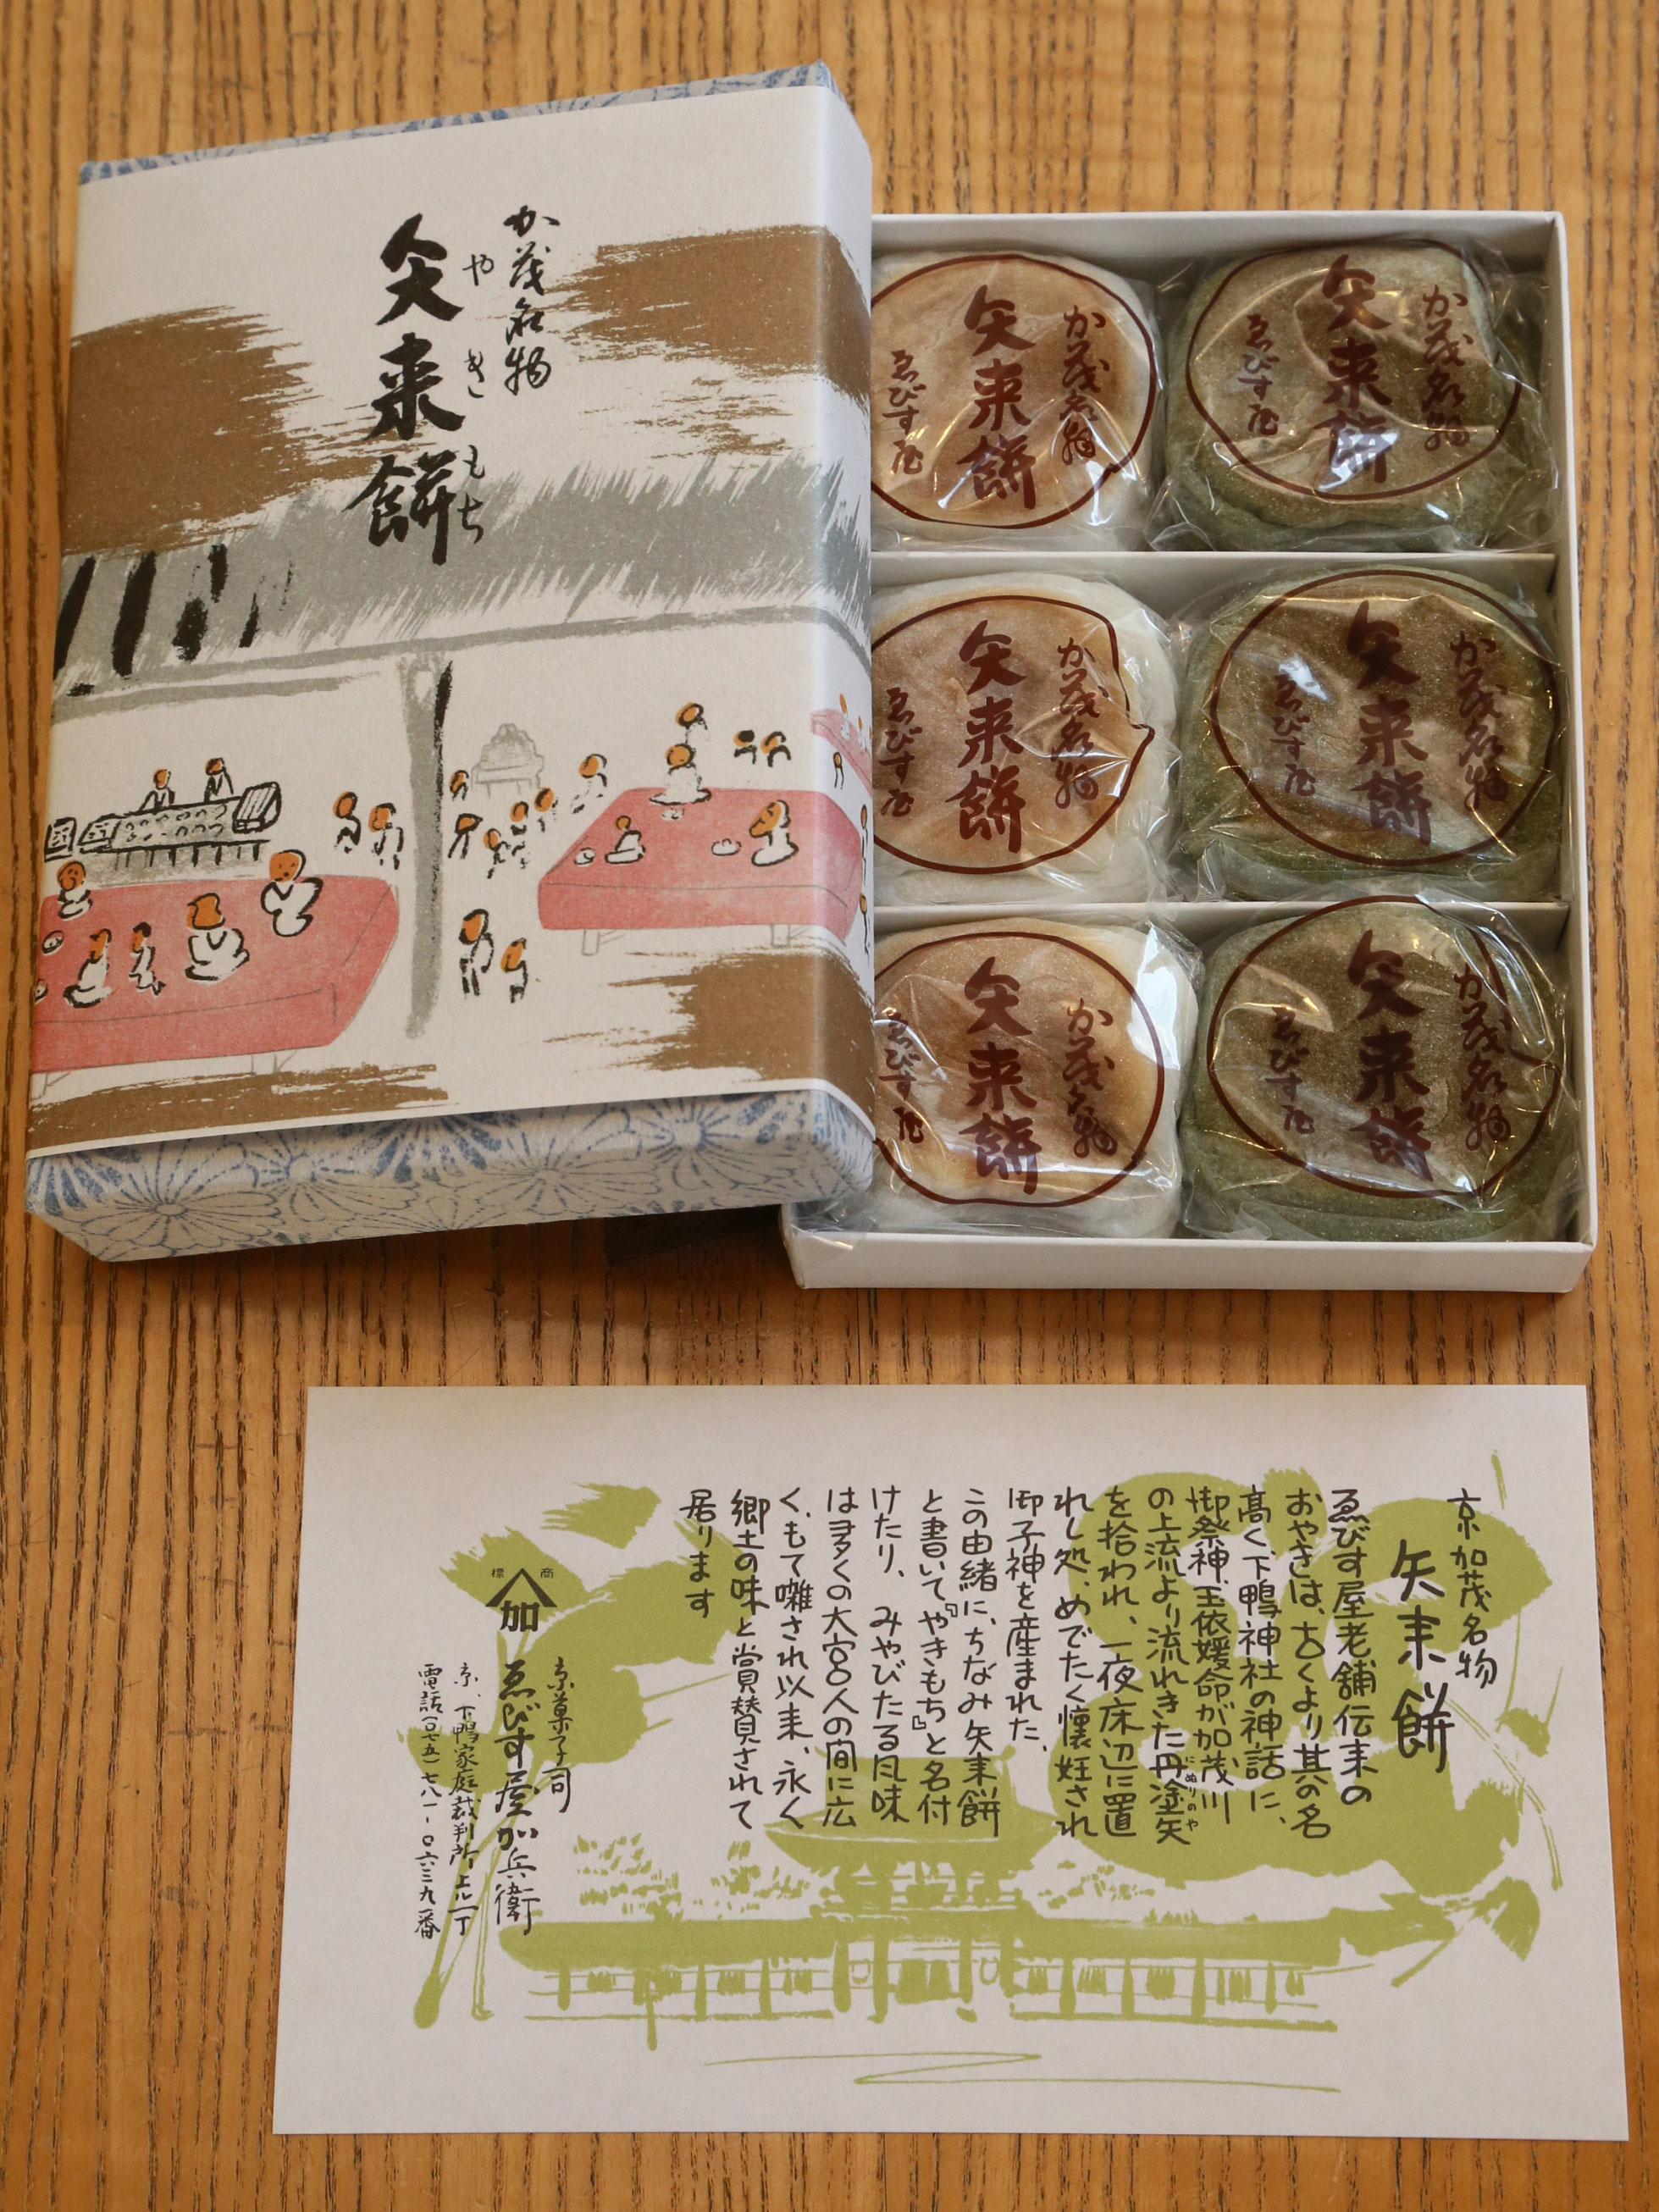 か茂名物
矢来餅
やきもち
か茂名物
矢来餅
ゑびす屋
か茂名物
矢来餅
ゑびす屋
か茂名物
矢来餅
ゑびす屋
か茂名物
矢来餅
ゑびす屋
か茂名物
矢来餅
ゑびす屋
か茂名物
矢来餅
ゑびす屋
京加茂名物
矢来餅
ゑびす屋老舗伝来の
おやきは、古くより其の名
高く、下鴨神社の神話に、
御祭神、玉依媛命が加茂川
の上流より流れきた丹塗矢
にぬりのや
を拾われ、一夜床辺に置
れし処、めでたく懐妊され
御子神を産まれた、
この由緒に、ちなみ矢来餅
と書いて『やきもち』と名付
けたり、みやびたる風味
は多くの大宮人の間に広
く、もて囃され以来、永く
郷土の味と賞賛されて
居ります
商標
加
京菓子司
ゑびす屋加兵衛
京、下鴨家庭裁判所上ル一丁
電話(〇七五)七八一-〇六三九番